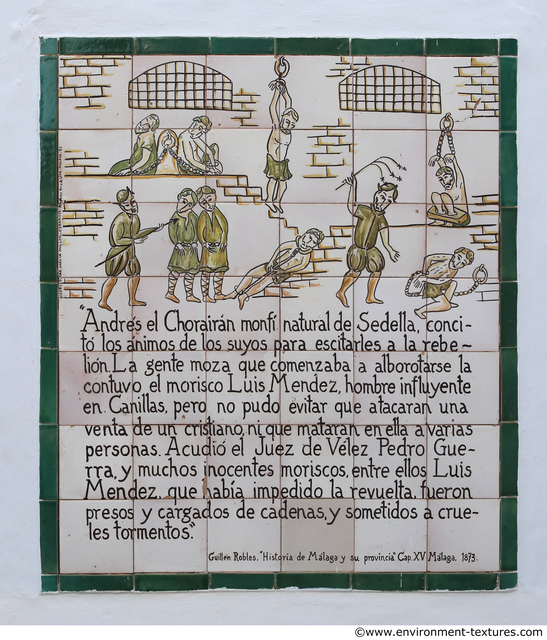 "Andrés el Chorairán monfí natural de Sedella, conci-
tó los ánimos de los suyos para escitarles a la rebe-
lión. La gente moza que comenzaba a alborotarse la
contuvo el morisco Luis Mendez, hombre influyente
en Canillas, pero no pudo evitar que atacaran una
venta de un cristiano, ni que mataran en ella a varias
personas. Acudió el Juez de Vélez Pedro Gue-
rra, y muchos inocentes moriscos, entre ellos Luis
Mendez, que había impedido la revuelta, fueron
presos y cargados de cadenas, y sometidos a crue-
les tormentos."
Guillén Robles. "Historia de Málaga y su provincia" Cap. XV. Málaga, 1873.
©www.environment-textures.com